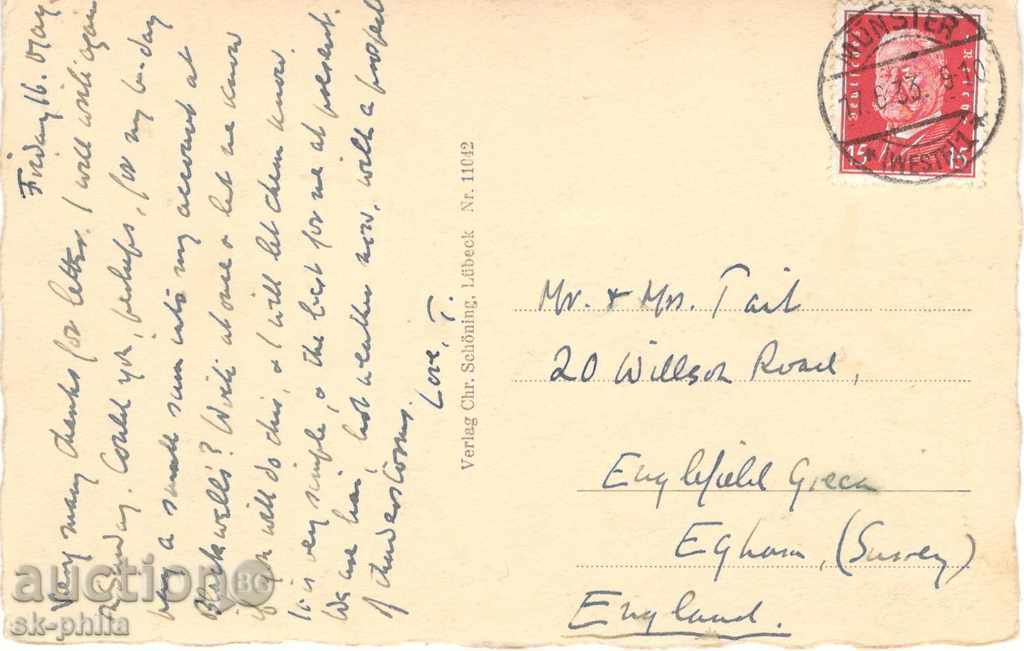 Friday 16. May.
Very many thanks for letter. I will write again
on Sunday. Could you, perhaps, for my birthday
pay a small sum into my account at
Blackwell's? Write at once & let me know
if you will do this, & I will let them know.
It is very simple, & the best for me at present.
We are having hot weather now, with a prospect
of thunderstorms.
Love, T.
Verlag Chr. Schöning, Lübeck Nr. 11042
MÜNSTER
6 33. 9-10
* (WESTF) 1 *
Deutsches Reich
15 15
Mr. & Mrs. Tait
20 Willson Road,
Englefield Green
Egham, (Surrey)
England.
auction BG
sk-philia